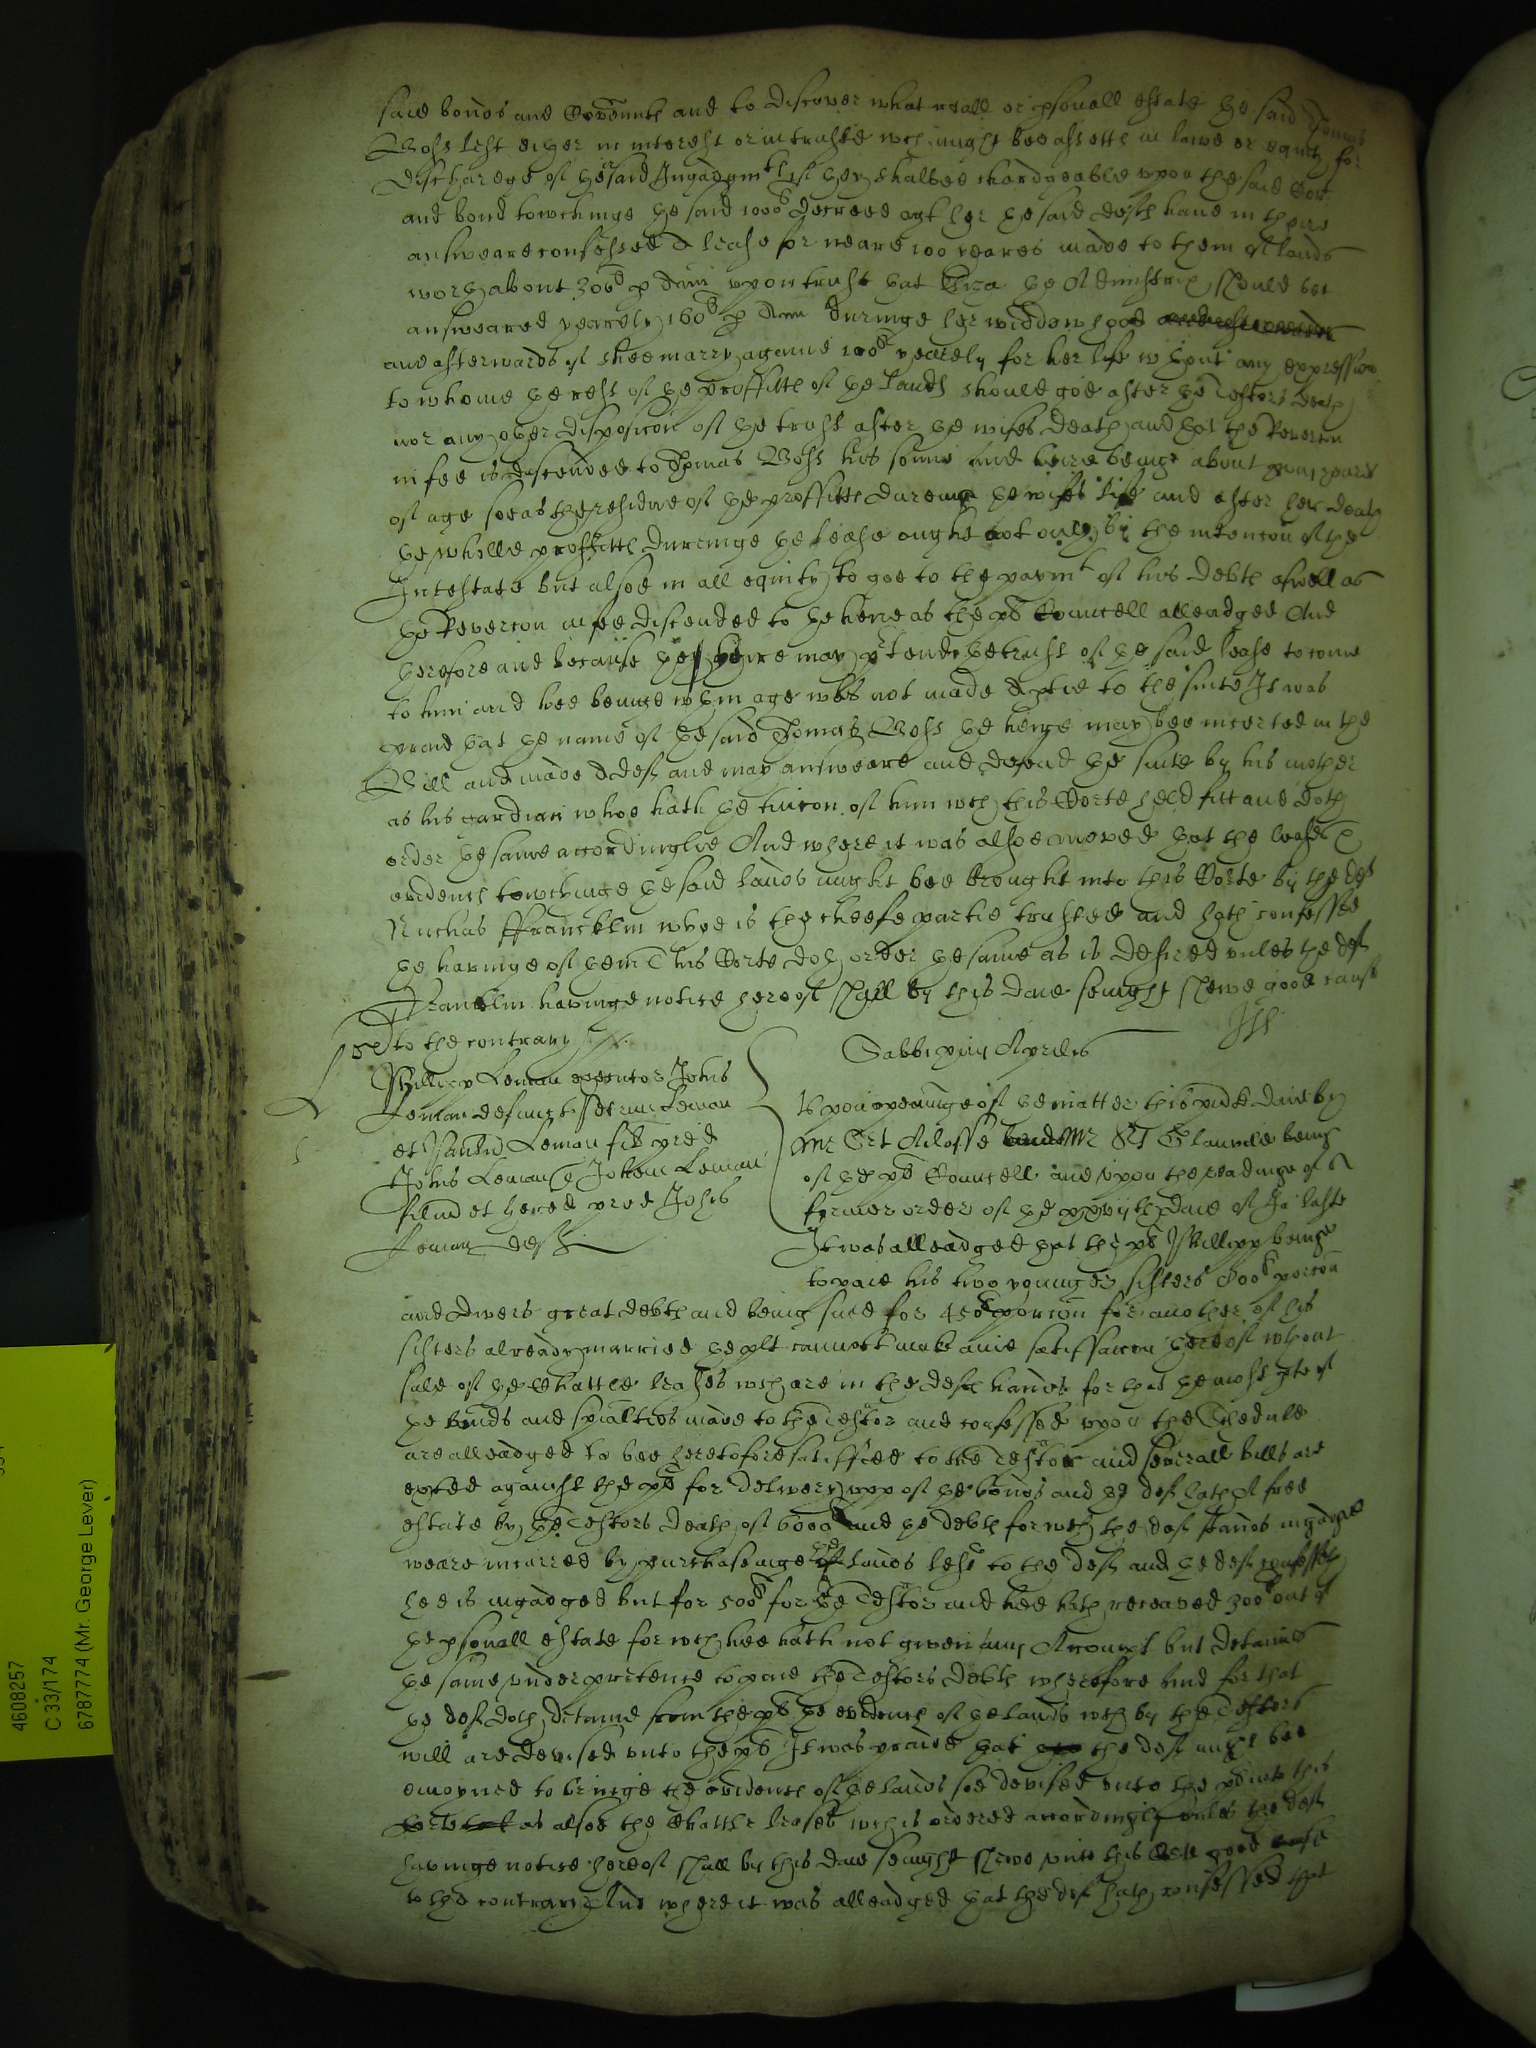 said bonds and Covennts and to discover what reall or psonall estate the said Thomas
Gosse left either in interest or in truste wch might bee assetts in lawe or equity for
discharge of the said Ingadgmts if they shalbee chardgeable upon the said Covt
and bond towchinge the said 1000l decreed agt her the said defts have in their
answeare confessed a lease for neare 100 yeares made to them of lands
worth about 300l p Ann upon trust that the Administrix should bee
answeared yearely 160l p Ann duringe her widdowhood
and afterwards if shee marry againe 100l yearely for her life wthout any expression
to whome the rest of the proffitts of the lands should goe after the Testors death
nor any other disposicon of the trust after the wifes death and that the Revercon
in fee is descended to Thomas Gosse his sonne and heire beinge about yeares
of age soe as the residue of the proffitts dureing the wifes life and after her death
the whole proffitts duringe the lease ought not only by the intencon of the
Intestate but alsoe in all equity to goe to the paymt of his debts aswell as
the Revercon in fee discended to the heire as the pts Councell alleadged And
therefore and because the heire may prtend the trust of the said lease to come
to him and hee beinge wthin age was not made a ptie to the suite It was
praied that the name of the said Thomas Gosse the heire may bee inserted in the
Bill and made a deft and may answeare and defend the suite by his mother
as his gardian whoe hath the tuicon of him wch this Corte held fitt and doth
order the same accordinglie And where it was alsoe moved that the leases &
evidencs towchinge the said lands might bee brought into this Corte by the deft
Nichas Francklin whoe is the cheefe partie trusted and hath confessed
the havinge of them This Corte doth order the same as is desired unles the deft
Francklin havinge notice hereof shall by this daie senight shewe good cause
to the contrary
Sabbi Aprilis
Phillipp Leman executor Johis
Leman defunct
et Leman fil pred
Johis Leman & Johem Leman
filiu et hered pred Johis
Leman deft
Upon openinge of the matter this pnte daie by
Mr Ert Ailoffe Mr St Glanvile being
of the pts Councell and upon the readinge of a
former order of the th daie of Ja: laste
It was alleadged that the pt Phillipp beinge
to paie his two younger sisters 800l porcon
and divers great debts and being sued for 450l porcon for another of his
sisters already married the plt cannott make anie satisfaccon thereof wthout
sale of the Chattle leases wch are in the defts hands for that the most pte of
the bonds and spialties made to the Testor and confessed upon the Schedule
are alleadged to bee heretofore satisfied to the Testor and severall bills are
exhted against the pt for delivery upp of the bonds and the deft hath A free
estate by the Testors death of 6000l and the debts for wch the deft stands ingadged
weare incurred by purchaseinge the lands left to the deft and the deft confesseth
hee is ingadged but for 500l for the Testor and hee hath receaved 300l out of
the psonall estate for wch hee hath not given any Accompt but detaines
the same under pretence to paie the Testors debts wherefore and for that
the deft doth detaine from the pt the evidencs of the lands wch by the Testors
will are devised unto the pt It was praied that the deft might bee
enioyned to bringe the evidencs of the lands soe devised unto the pt into this
as alsoe the Chattle leases wch is ordered accordingly unles the deft
havinge notice hereof shall by this daie senight shewe unto this Corte good cause
to the contrary And where it was alleadged that the deft hath confessed that
4608257
C 33/174
6787774 (Mr. George Lever)